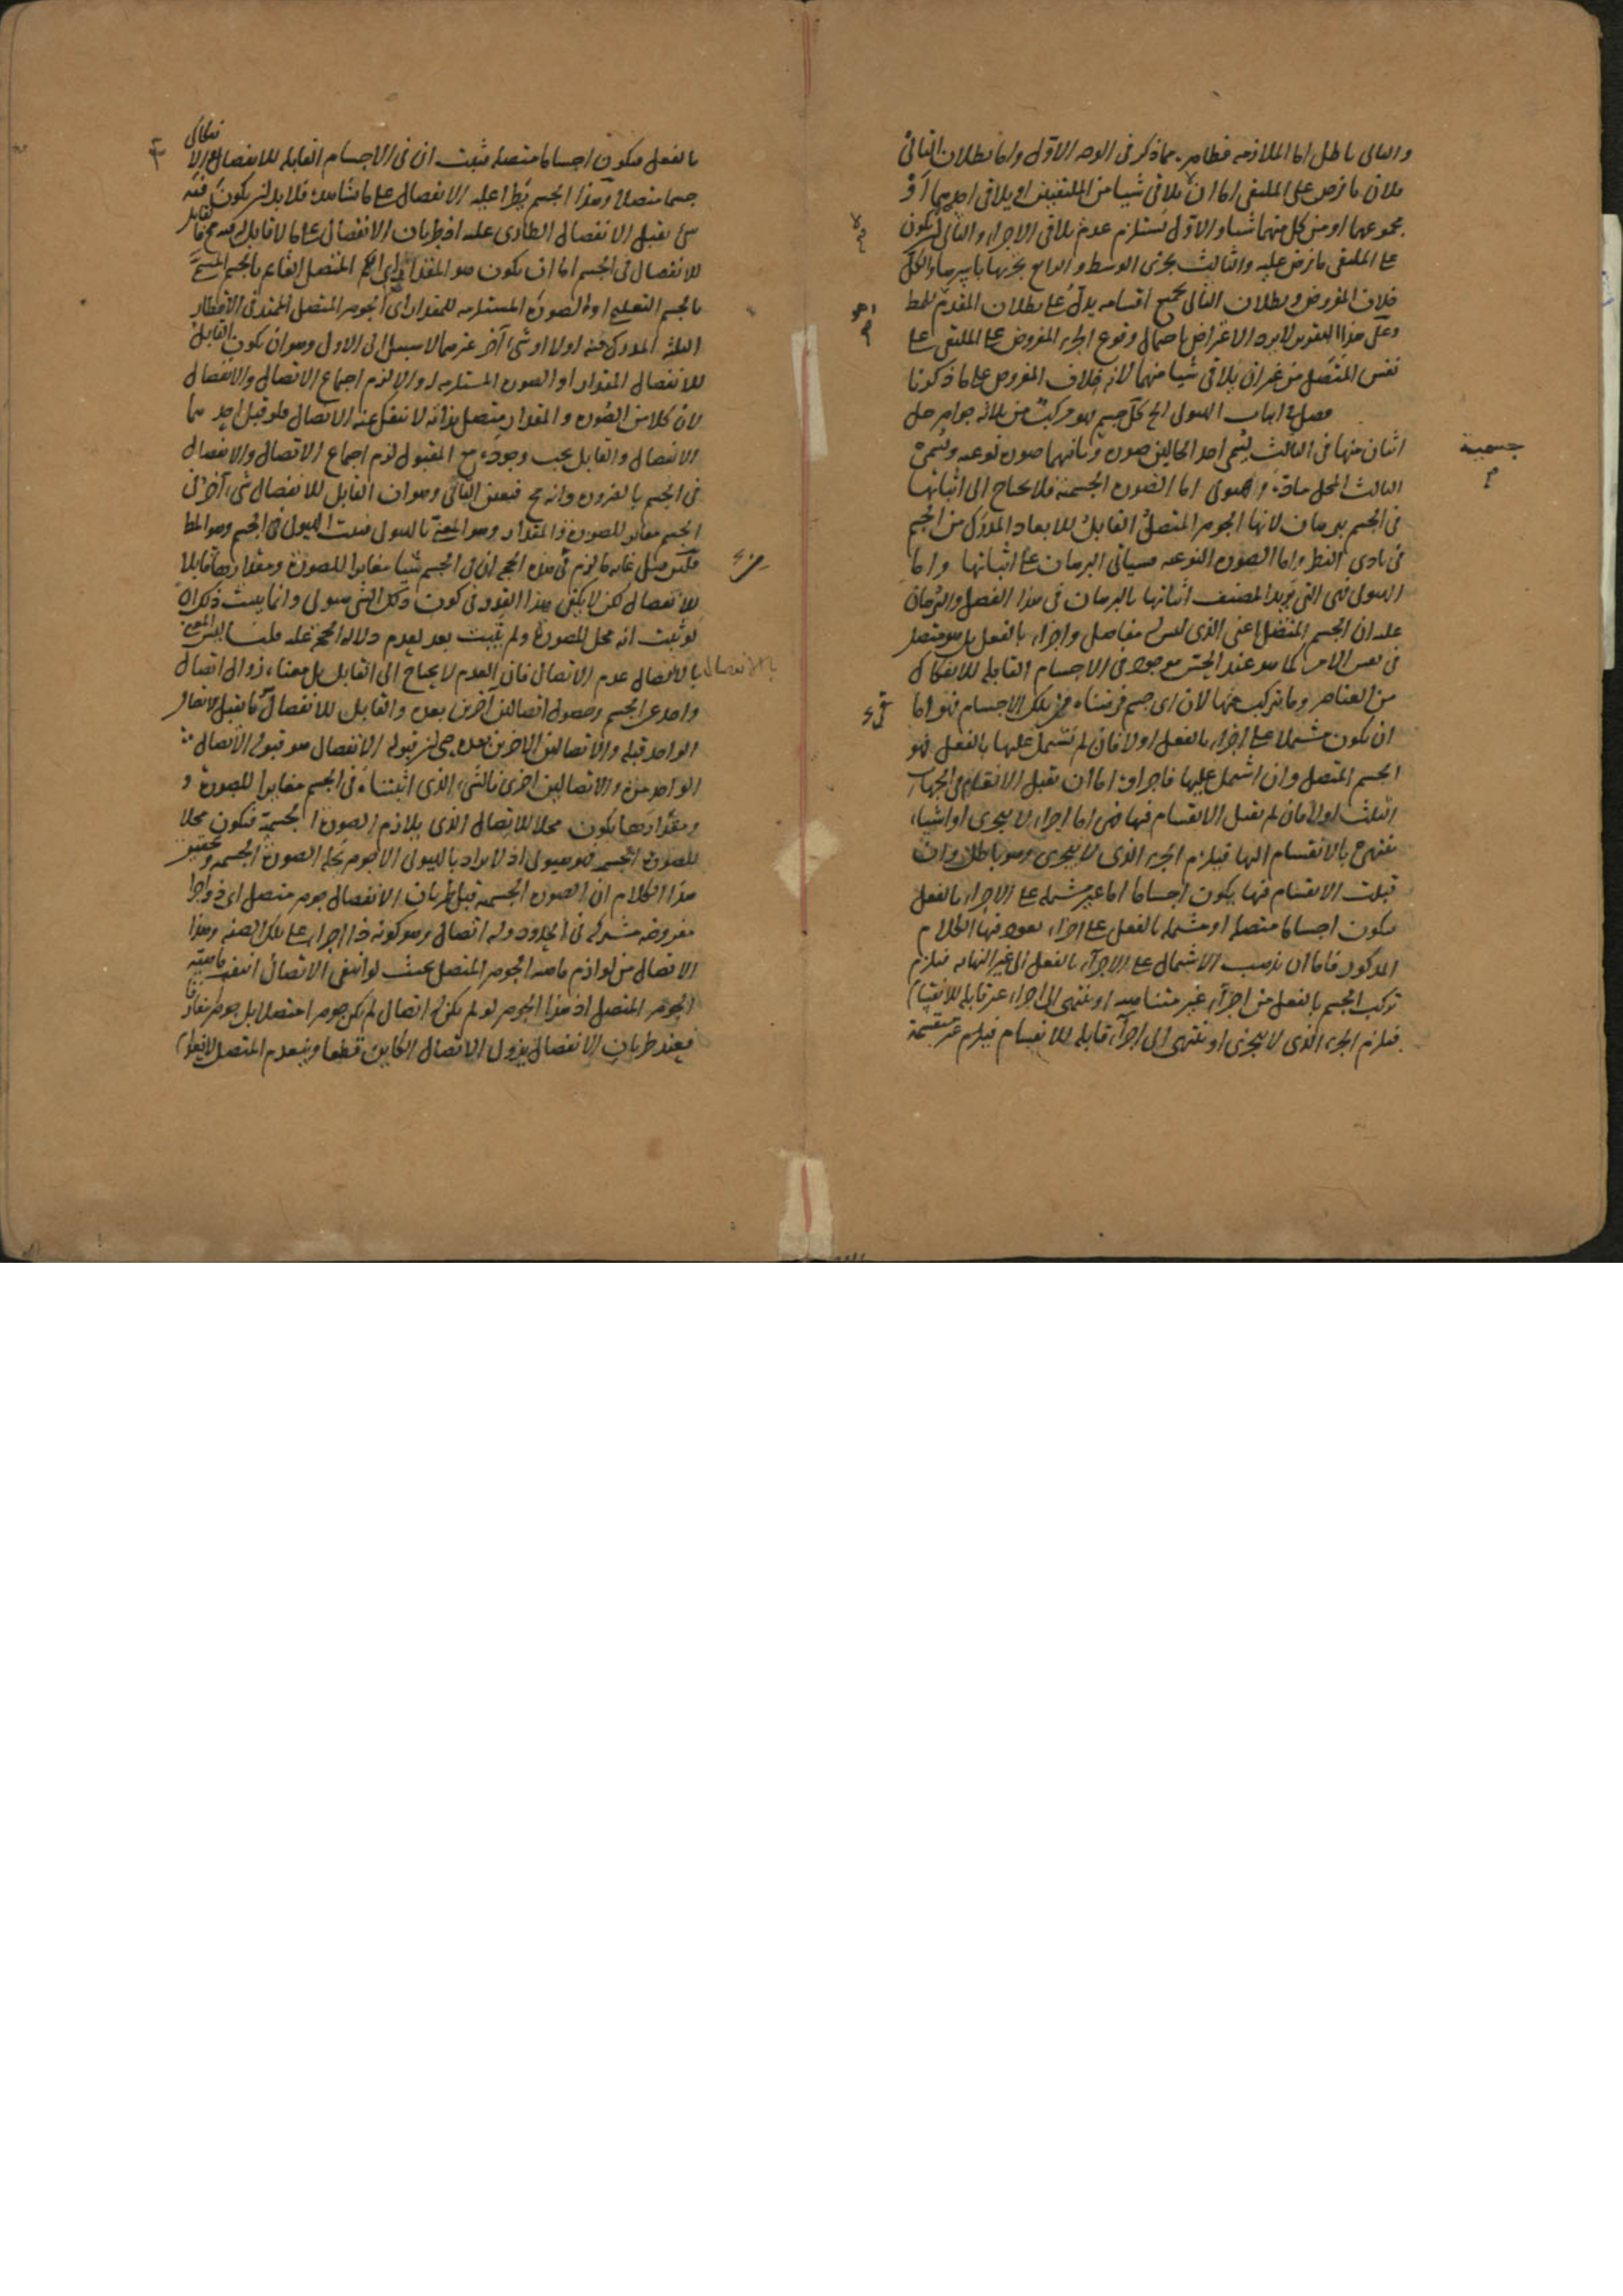 والتالى باطل اما الملازمة فظاهر مما ذكر فى الوجه الاول واما بطلان التالى
فلان ما فرض على الملتقى اما ان لا يلاقى شيا من الملتقيين او يلاقى احديهما او
مجموعهما او من كل منهما شيا والاول يستلزم عدم تلاقى الاجزاء والثانى ان لا يكون
على الملتقى ما فرض عليه والثالث تجزى الوسط والرابع تجزيها باسرها والكل
خلاف المفروض وبطلان التالى بجميع اقسامه يدل على بطلان المقدم وهو المط
وعلى هذا التقرير لا يرد الاعتراض باحتمال وقوع الجزء المفروض على الملتقى على
نفس المتصل من غير ان يلاقى شيا منهما لانه خلاف المفروض على ما ذكرنا
فصل فى اثبات الهيولى الخ كل جسم فهو مركب من ثلثة جواهر حل
اثنان منها فى الثالث يسمى احد الحالين صورة جسمية وثانيهما صورة نوعيه ويسمى
الثالث المحل مادة وهيولى اما الصورة الجسمية فلا يحتاج الى اثباتها
فى الجسم ببرهان لانها الجوهر المتصل القابل للابعاد المدرك من الجسم
فى بادى النظر واما الصورة النوعيه فسياتى البرهان على اثباتها واما
الهيولى فهى التى يريد المصنف اثباتها بالبرهان فى هذا الفصل والبرهان
عليه ان الجسم المتصل اعنى الذى ليس له مفاصل واجزاء بالفعل بل هو متصل
فى نفس الامر كما هو عند الحس موجود فى الاجسام القابلة للانفكاك
من العناصر وما يتركب عنها لان اى جسم فرضناه من تلك الاجسام فهو اما
ان يكون مشتملا على اجزاء بالفعل او لا فان لم يشتمل عليها بالفعل فهو
الجسم المتصل وان اشتمل عليها فاجزاؤه اما ان تقبل الانقسام فى الجهات
الثلث او لا فان لم تقبل الانقسام فيها فهى اما اجزاء لا يتجزى او اشياء
تنتهى بالانقسام اليها فيلزم الجزء الذى لا يتجزى وهو باطل وان
قبلت الانقسام فيها يكون اجساما اما غير مشتملة على الاجزاء بالفعل
فيكون اجساما متصلة او مشتملة بالفعل على اجزاء يعود فيها الكلام
المذكور فاما ان يذهب الاشتمال على الاجزاء بالفعل الى غير النهاية فيلزم
تركب الجسم بالفعل من اجزاء غير متناهية او ينتهى الى اجزاء غير قابلة للانقسام
فيلزم الجزء الذى لا يتجزى او ينتهى الى اجزاء قابلة للانقسام فيلزم غير منقسمة
بالفعل فيكون اجساما متصلة فثبت ان فى الاجسام القابلة للانفصال الانفكاكى
جسما متصلا وهذا الجسم يطرأ عليه الانفصال على ما نشاهده فلا بد ان يكون فيه
شئ يقبل الانفصال الطارى عليه اذ طريان الانفصال على ما لا قابل له فيه مح فالقابل
للانفصال فى الجسم اما ان يكون هو المقدار اى الكم المتصل القائم بالجسم المسمى
بالجسم التعليمى او الصورة المستلزمة للمقدار اى الجوهر المتصل الممتد فى الاقطار
الثلثة المدرك منه اولا او شئ آخر غيرهما لا سبيل الى الاول وهو ان يكون القابل
للانفصال المقدار او الصورة المستلزمة له والا لزم اجتماع الاتصال والانفصال
لان كلا من الصورة والمقدار متصل بذاته لا ينفك عنه الاتصال فلو قبل احدهما
الانفصال والقابل يجب وجوده مع المقبول لزم اجتماع الاتصال والانفصال
فى الجسم بالضرورة وانه مح فتعين الثانى وهو ان القابل للانفصال شئ آخر فى
الجسم مغاير للصورة والمقدار وهو المعنى بالهيولى فثبت الهيولى فى الجسم وهو المط
فلئن قيل غاية ما لزم من هذه الحجة ان فى الجسم شيا مغايرا للصورة ومقدارها قابلا
للانفصال لكن لا يكفى هذا القدر فى كون ذلك الشئ هيولى وانما يثبت ذلك ان
لو ثبت انه محل للصورة ولم يثبت بعد لعدم دلالة الحجة عليه قلنا ليس المعنى
بالانفصال عدم الاتصال فان العدم لا يحتاج الى القابل بل معناه زوال اتصال
واحد عن الجسم وحصول اتصالين آخرين بعده والقابل للانفصال كما يقبل الاتصال
الواحد قبله والاتصالين الاخرين بعده حين قبول الانفصال هو قبول الاتصال
الواحد مرة والاتصالين اخرى فالشئ الذى اثبتناه فى الجسم مغايرا للصورة و
ومقدارها يكون محلا للاتصال الذى يلازم الصورة الجسمية فيكون محلا
للصورة الجسمية فهو هيولى اذ لا يراد بالهيولى الا جوهر يحله الصورة الجسمية وتحقيق
هذا الكلام ان الصورة الجسمية قبل طريان الانفصال جوهر متصل اى ذو اجزاء
مفروضة مشتركة فى الحدود وله اتصال وهو كونه ذا اجزاء على تلك الصفة وهذا
الاتصال من لوازم ماهية الجوهر المتصل بحيث لو انتفى الاتصال انتفت ماهيته
الجوهر المتصل اذ هذا الجوهر لو لم يكن له اتصال لم يكن جوهرا متصلا بل جوهر مفارقا
فعند طريان الانفصال يزول الاتصال الكاين قطعا وينعدم المتصل لانعدام